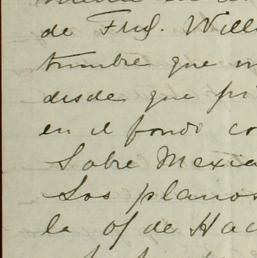 de Ing. Will
tumbre que
desde que
en el fondo co
Sobre Mexi
Los planos
la of de Hac